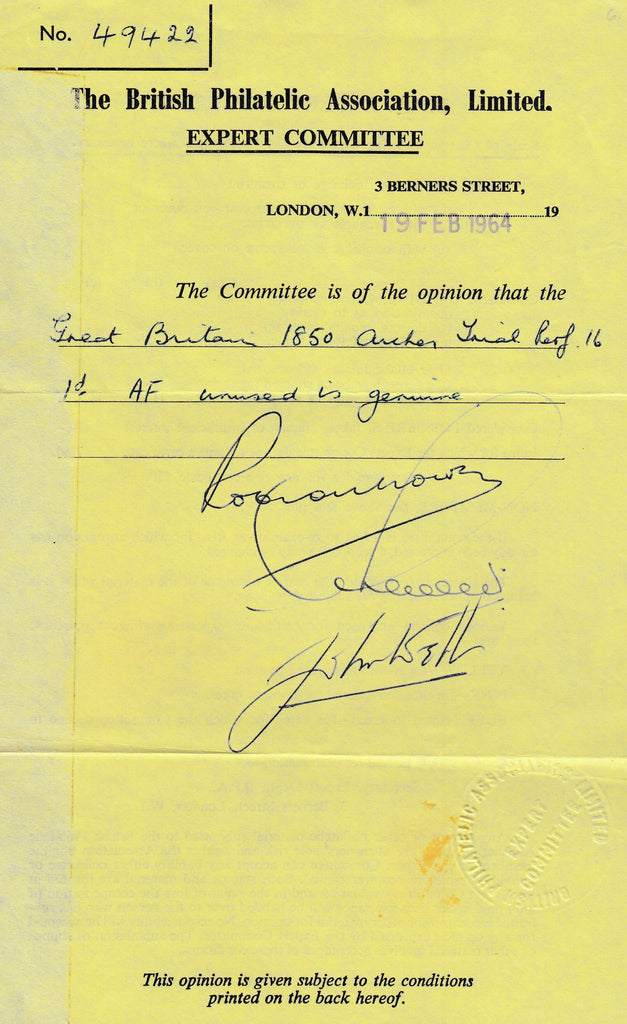 No. 49422
The British Philatelic Association, Limited.
EXPERT COMMITTEE
3 BERNERS STREET,
LONDON, W.1 19 FEB 1964 19
The Committee is of the opinion that the
Great Britain 1850 Archer Trial Perf. 16
1d AF unused is genuine
BRITISH PHILATELIC ASSOCIATION LIMITED
EXPERT
COMMITTEE
This opinion is given subject to the conditions
printed on the back hereof.